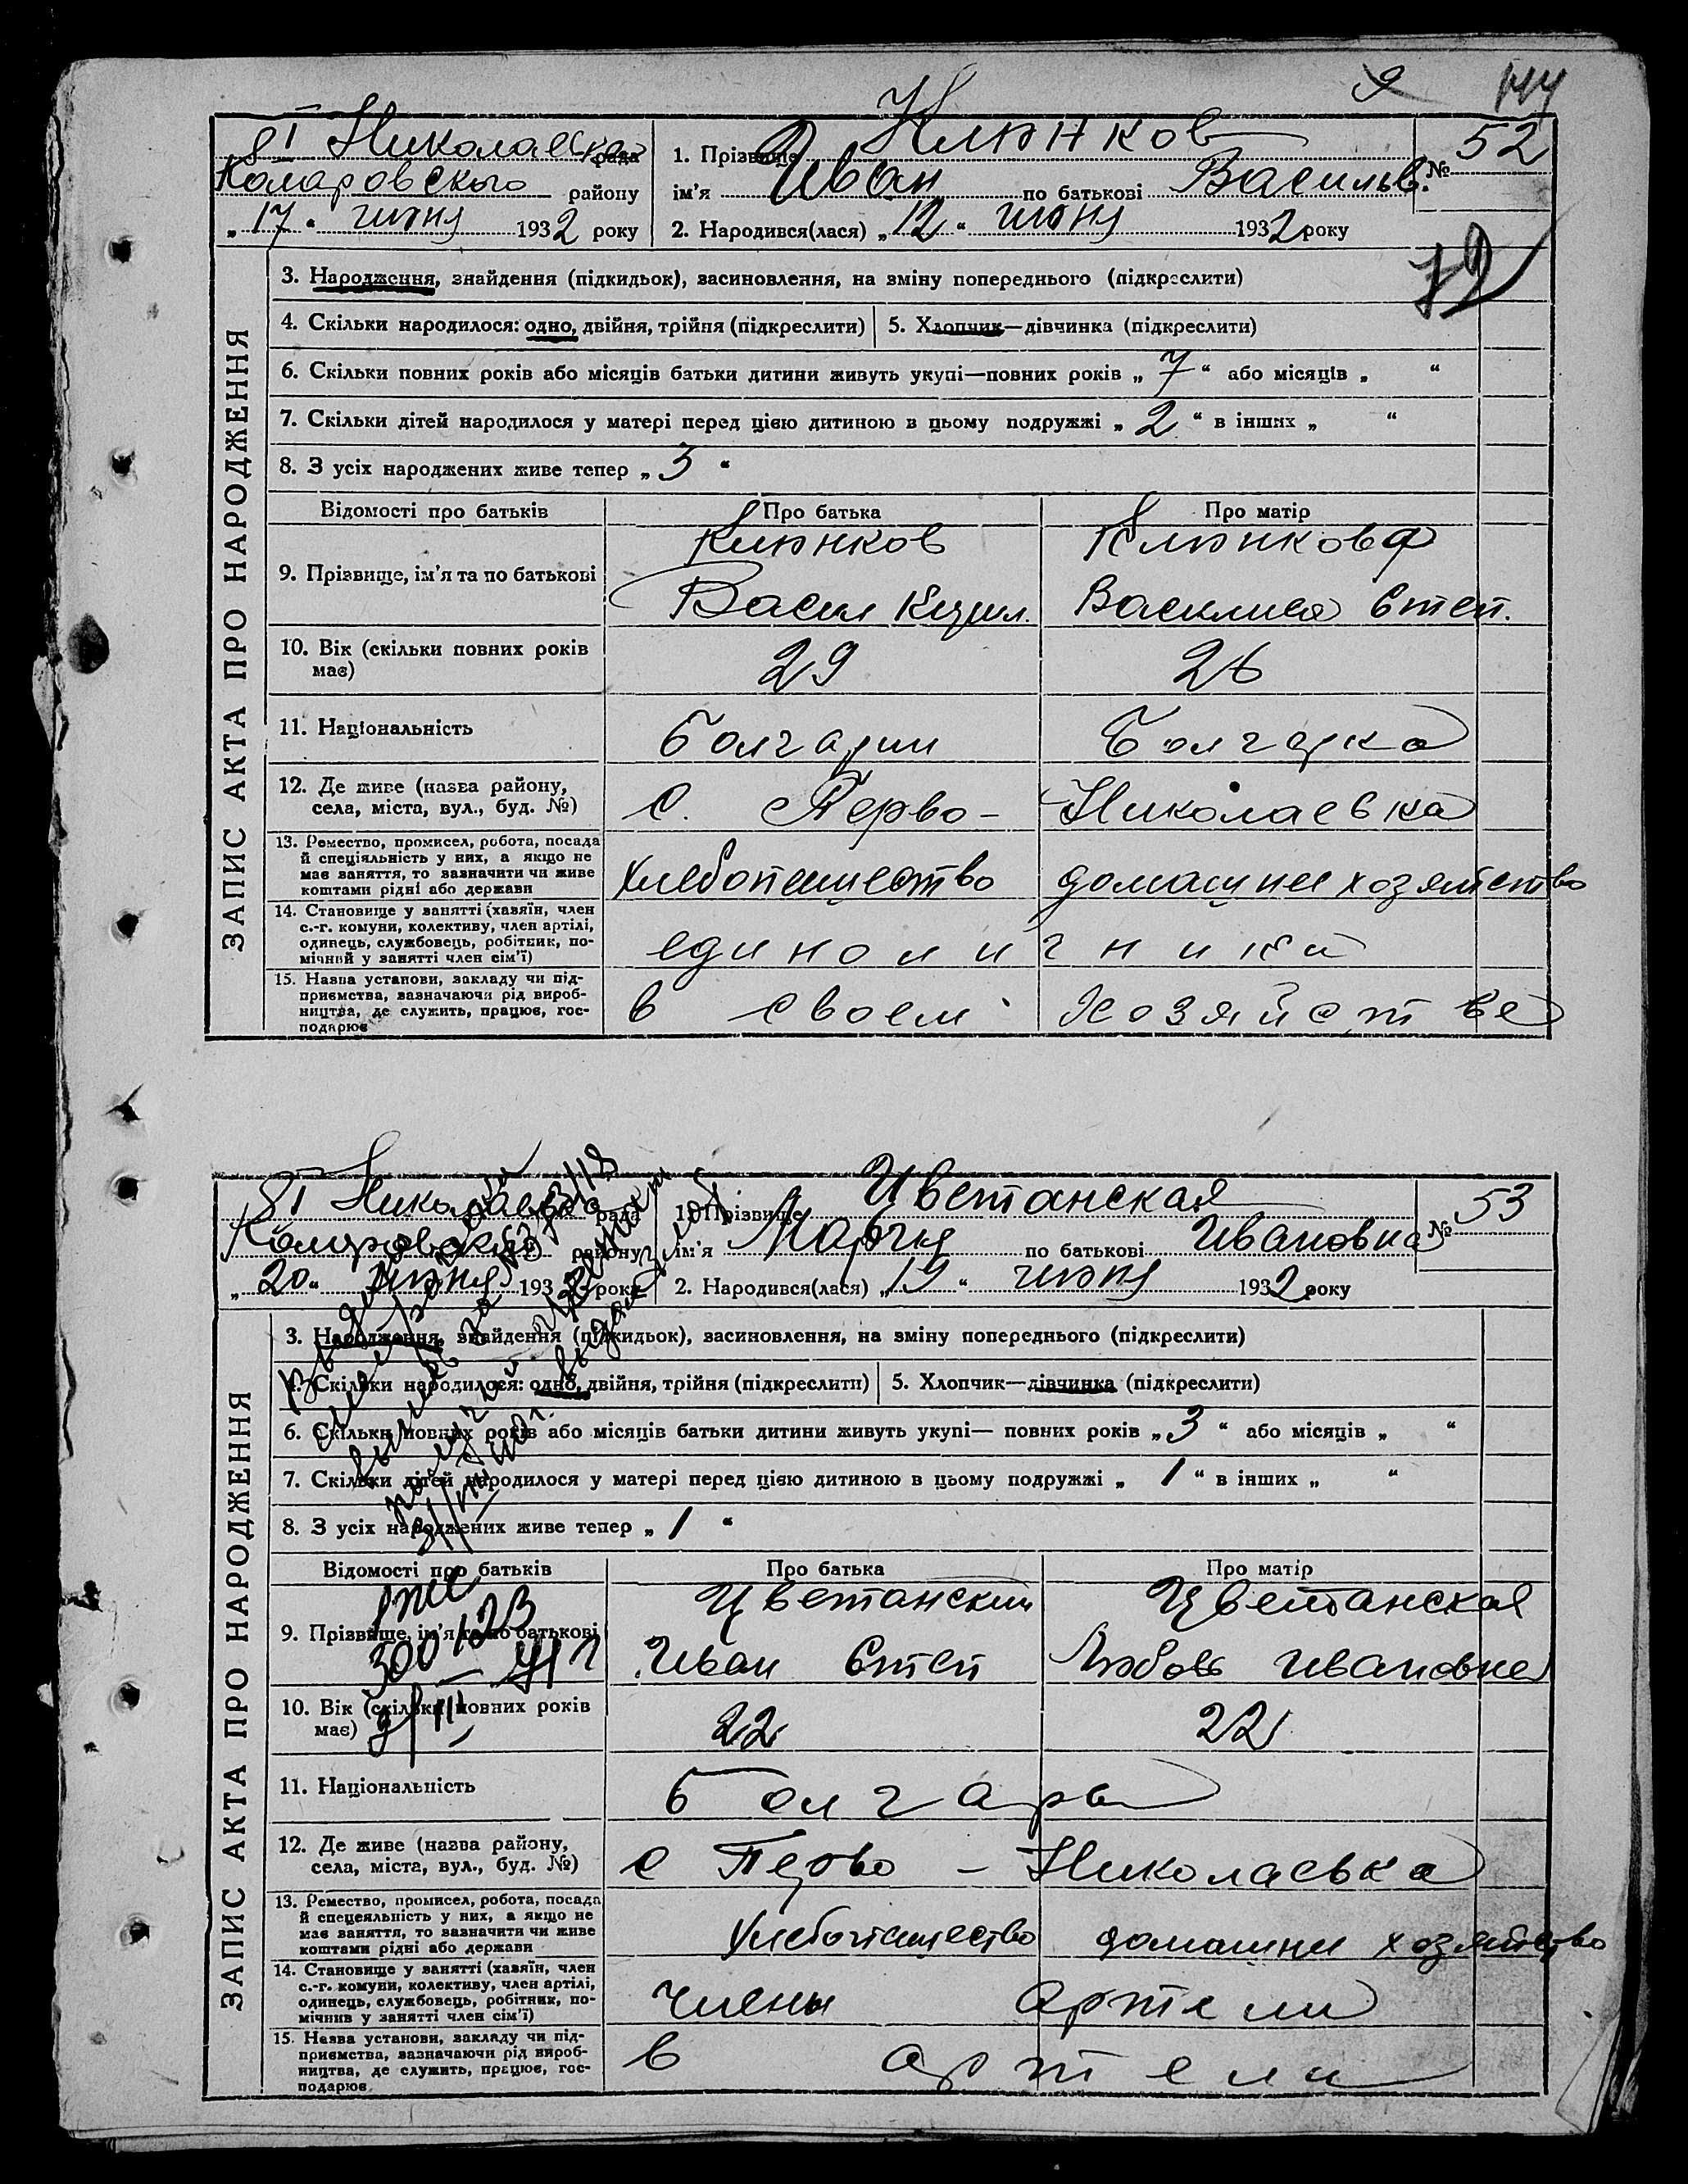 144
Клюнков
ЗАПИС АКТА ПРО НАРОДЖЕННЯ
Николаевка рада
Коларовского району
„17“ июня 1932 року
1. Прізвище
ім'я Иван по батькові Васильев.
2. Народився(лася) „12“ июня 1932 року
№ 52
3. Народження, знайдення (підкидьок), засиновлення, на зміну попереднього (підкреслити)
4. Скільки народилося: одно, двійня, трійня (підкреслити)
5. Хлопчик—дівчинка (підкреслити)
6. Скільки повних років або місяців батьки дитини живуть укупі—повних років „7“ або місяців „ “
7. Скільки дітей народилося у матері перед цією дитиною в цьому подружжі „2“ в інших „ “
8. З усіх народжених живе тепер „3“
Відомості про батьків Про батька Про матір
9. Прізвище, ім'я та по батькові
Клюнков
Васил Кирил.
Клюнкова
Василиса Степ.
10. Вік (скільки повних років
має)
29 26
11. Національність
Болгарин Болгарка
12. Де живе (назва району,
села, міста, вул., буд. №)
с. Перво- Николаевка
13. Ремество, промисел, робота, посада
й спеціяльність у них, а якщо не
має заняття, то зазначити чи живе
коштами рідні або держави
хлебопашество домашнее хозяйство
14. Становище у занятті (хазяїн, член
с.-г. комуни, колективу, член артілі,
одинець, службовець, робітник, по-
мічний у занятті член сім'ї)
единоличники
15. Назва установи, закладу чи під-
приємства, зазначаючи рід вироб-
ництва, де служить, працює, гос-
подарює
в своем хозяйстве
ЗАПИС АКТА ПРО НАРОДЖЕННЯ
Николаевка рада
Коларовский району
„20“ июня 1932 року
1. Прізвище Цветанская
ім'я Мария по батькові Ивановна
2. Народився(лася) „19“ июня 1932 року
№ 53
3. Народження, знайдення (підкидьок), засиновлення, на зміну попереднього (підкреслити)
4. Скільки народилося: одно, двійня, трійня (підкреслити)
5. Хлопчик—дівчинка (підкреслити)
6. Скільки повних років або місяців батьки дитини живуть укупі— повних років „3“ або місяців „ “
7. Скільки дітей народилося у матері перед цією дитиною в цьому подружжі „1“ в інших „ “
8. З усіх народжених живе тепер „1“
Відомості про батьків Про батька Про матір
9. Прізвище, ім'я та по батькові
Цветанский
Иван Степ
Цветанская
Любовь Ивановна
10. Вік (скільки повних років
має)
22 22
11. Національність
Болгары
12. Де живе (назва району,
села, міста, вул., буд. №)
с Перво - Николаевка
13. Ремество, промисел, робота, посада
й спецеяльність у них, а якщо не
має заняття, то зазначити чи живе
коштами рідні або держави
Хлебопашество домашнее хозяйство
14. Становище у занятті (хазяїн, член
с.-г. комуни, колективу, член артілі,
одинець, службовець, робітник, по-
мічнив у занятті член сім'ї)
члены артели
15. Назва установи, закладу чи під-
приємства, зазначаючи рід вироб-
ництва, де служить, працює, гос-
подарює
в артели